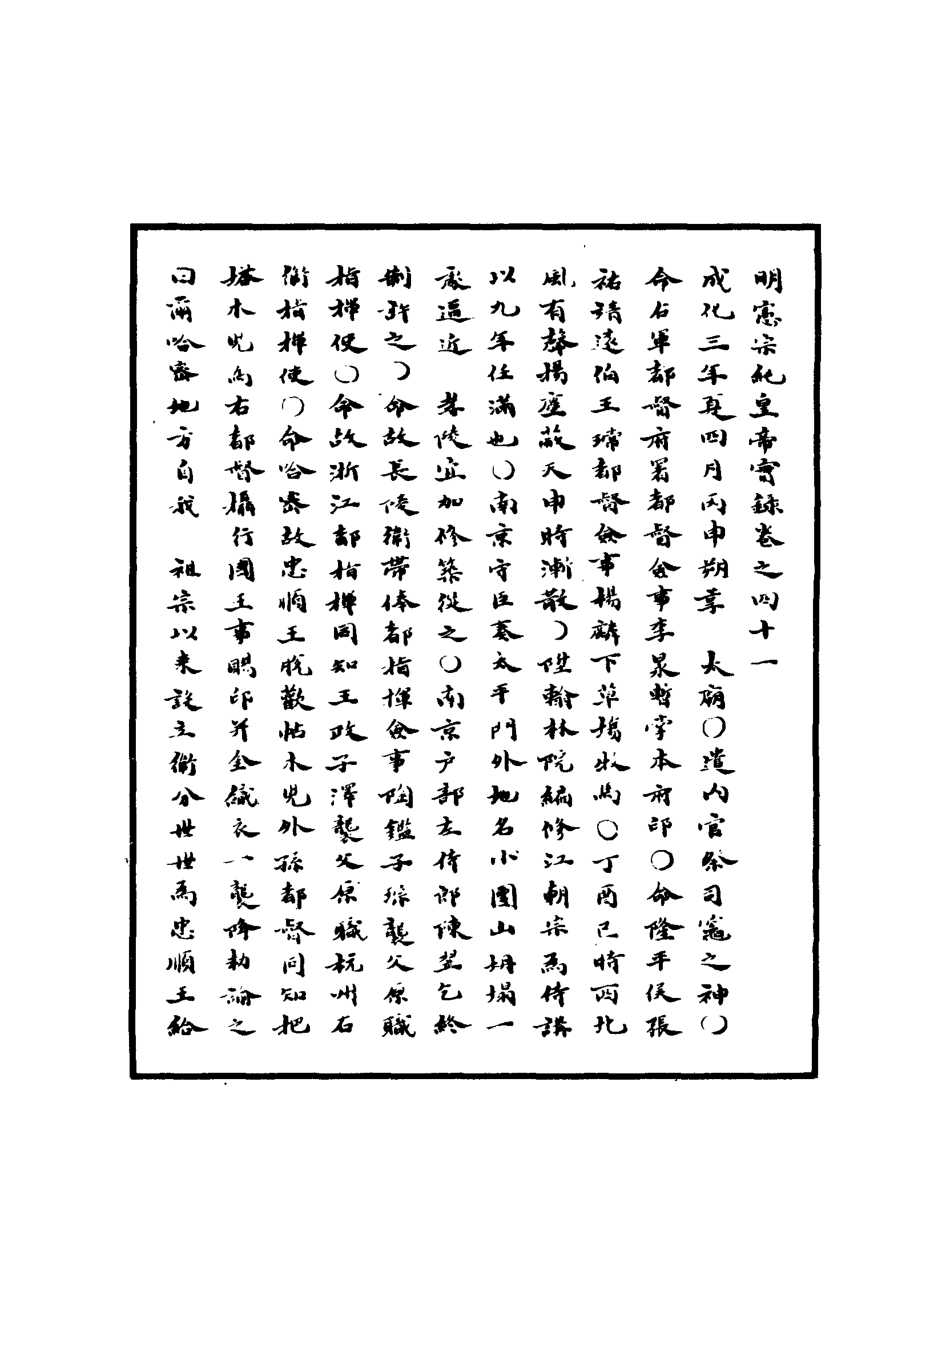 明憲宗純皇帝實録卷之四十一
成化三年夏四月丙申朔享　太廟〇遣内官祭司竈之神〇
命右軍都督府署都督僉事李杲暫掌本府印〇命隆平侯張
祐靖遠伯王瑺都督僉事楊麟下草塲牧馬〇丁酉巳時西北
風有聲揚塵蔽天申時漸散〇陞翰林院編修江朝宗為侍講
以九年任滿也〇南京守臣奏太平門外地名小團山坍塌一
處逼近　孝陵宜加修築從之〇南京户部左侍郎陳翌乞終
制許之〇命故長陵衛帶俸都指揮僉事陶鑑子琮襲父原職
指揮使〇命故浙江都指揮同知王政子澤襲父原職杭州右
衛指揮使〇命哈密故忠順王脱歡帖木兒外孫都督同知把
塔木兒為右都督攝行國王事賜印并金織衣一襲降勑諭之
曰爾哈密地方自我　祖宗以来設立衛分世世為忠順王給